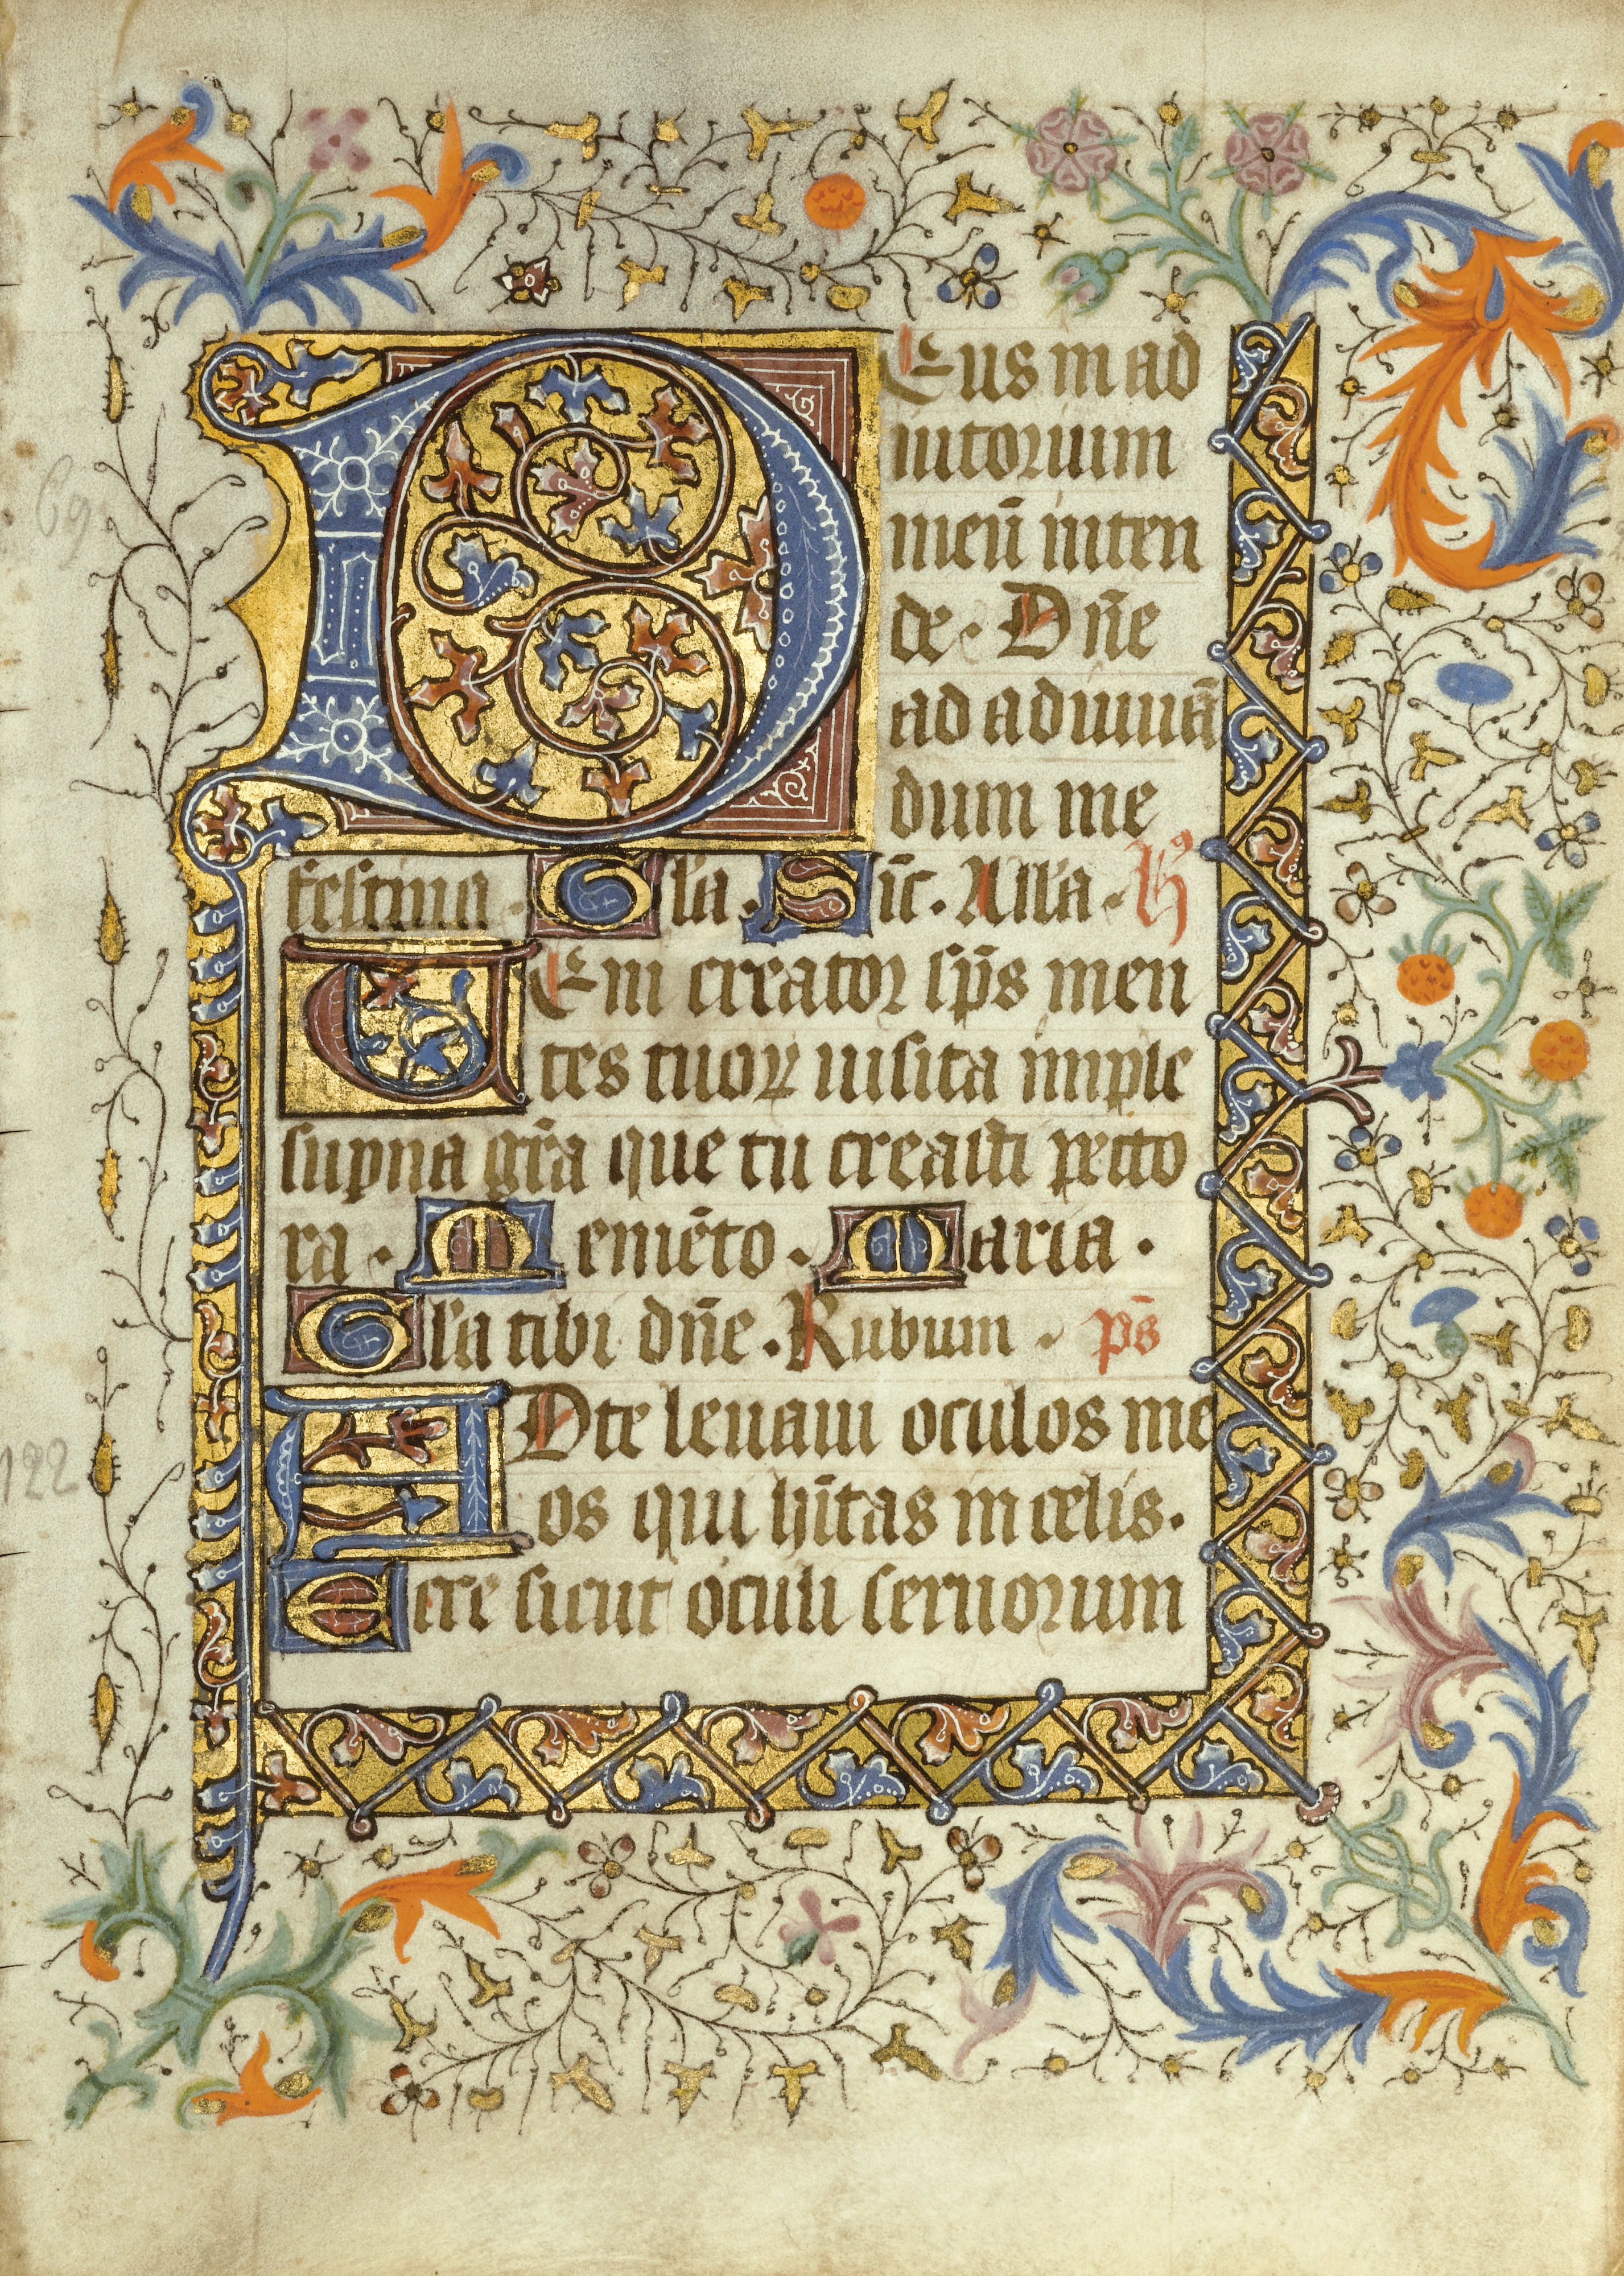 DEus in ad
iutorium
meū inten
de. Dn̄e
ad adiuuā
dum me
festina. Gl̄a. Sic̄. All̄a. h᷒
UEni creator sp̄s men
tes tuoꝝ uisita imple
supna gr̄a que tu creasti pecto
ra. Memēto. Maria.
Gl̄a tibi dn̄e. Rubum. ps̄
ADte leuaui oculos me
os qui hītas in celis.
Ecce sicut oculi seruorum
69
122